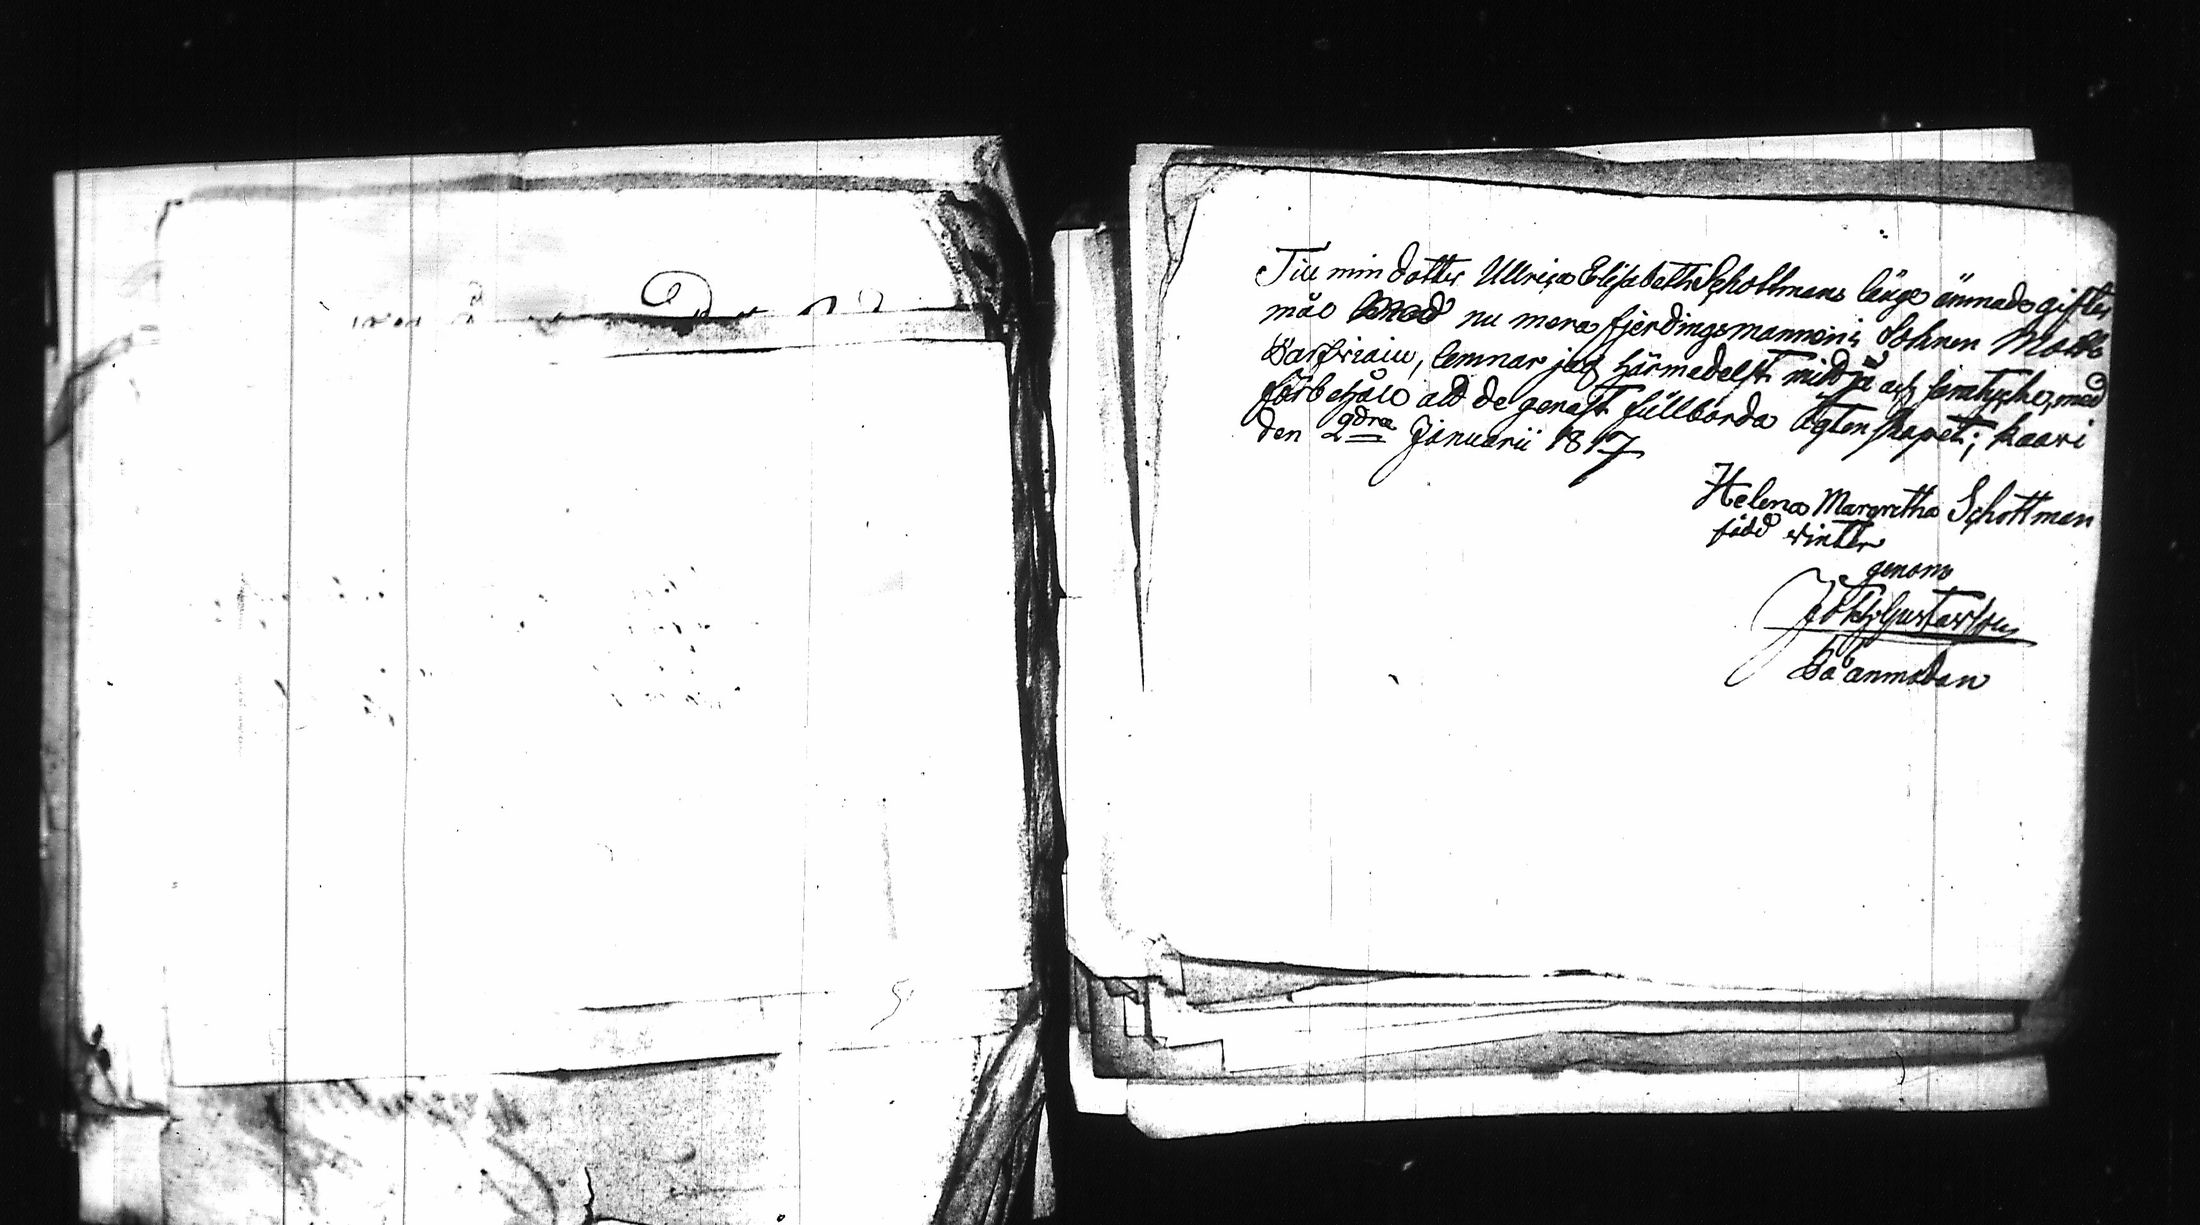 Till min dotter Ullrica Elisabeths Schottmans länge ämnade gifter
mål med nu mera fjerdingsmannens Sohnen Matts
lemnar jag härmedelst mitt ja och samtycke, med
förbehåll att de genast fullborda Ägtenskapet; kaavi
den 2dra Januarii 1817
Helena Margretha Schottman
född winter
genom
Gustafsson
På anmodan